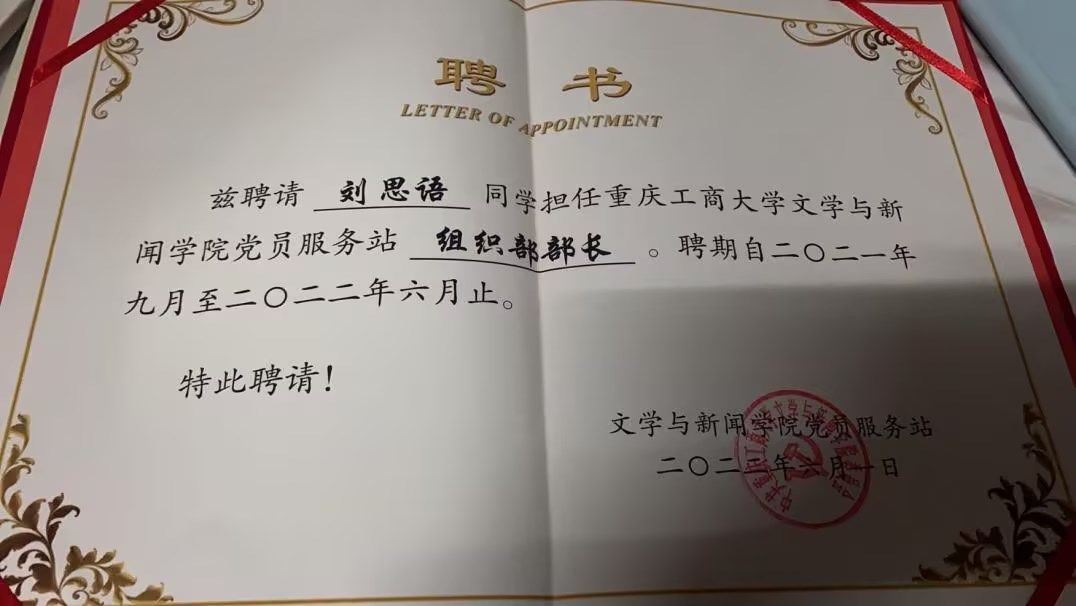 聘书
LETTER OF APPOINTMENT
兹聘请 刘思语 同学担任重庆工商大学文学与新
闻学院党员服务站 组织部部长 。聘期自二〇二一年
九月至二〇二二年六月止。
特此聘请!
文学与新闻学院党员服务站
二〇二二年六月一日